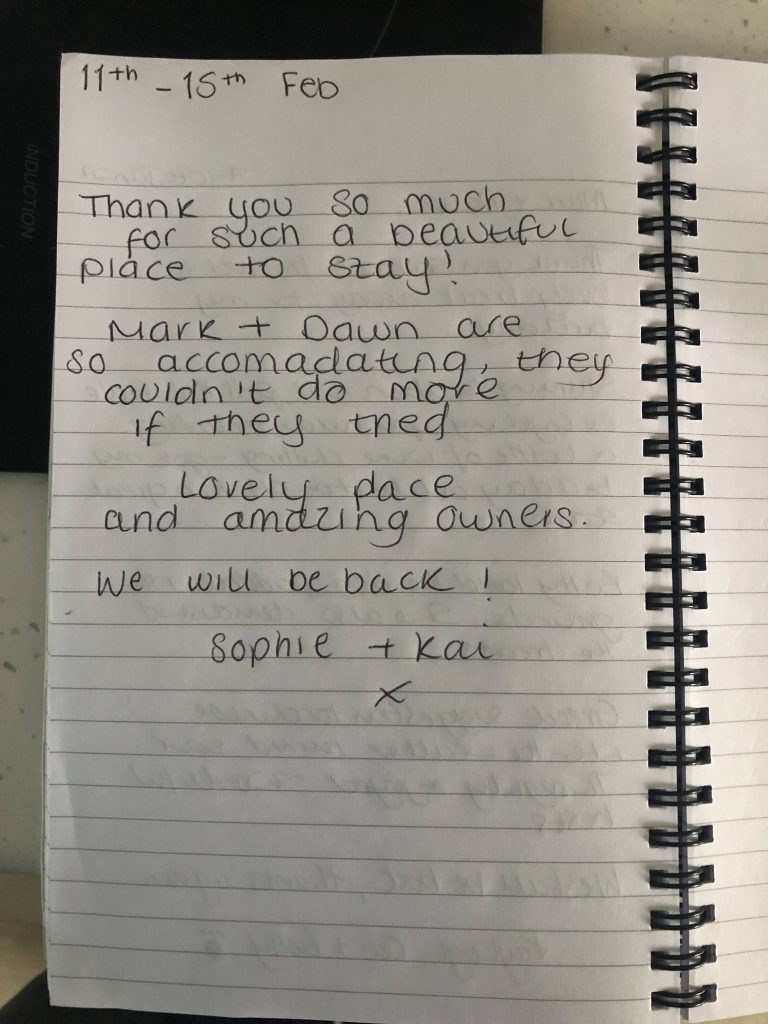 11th - 15th Feb
Thank you so much
for such a beautiful
place to stay!
Mark + Dawn are
so accomadating, they
couldn't do more
if they tried
Lovely place
and amazing owners.
We will be back!
Sophie + Kai
x
INDUCTION